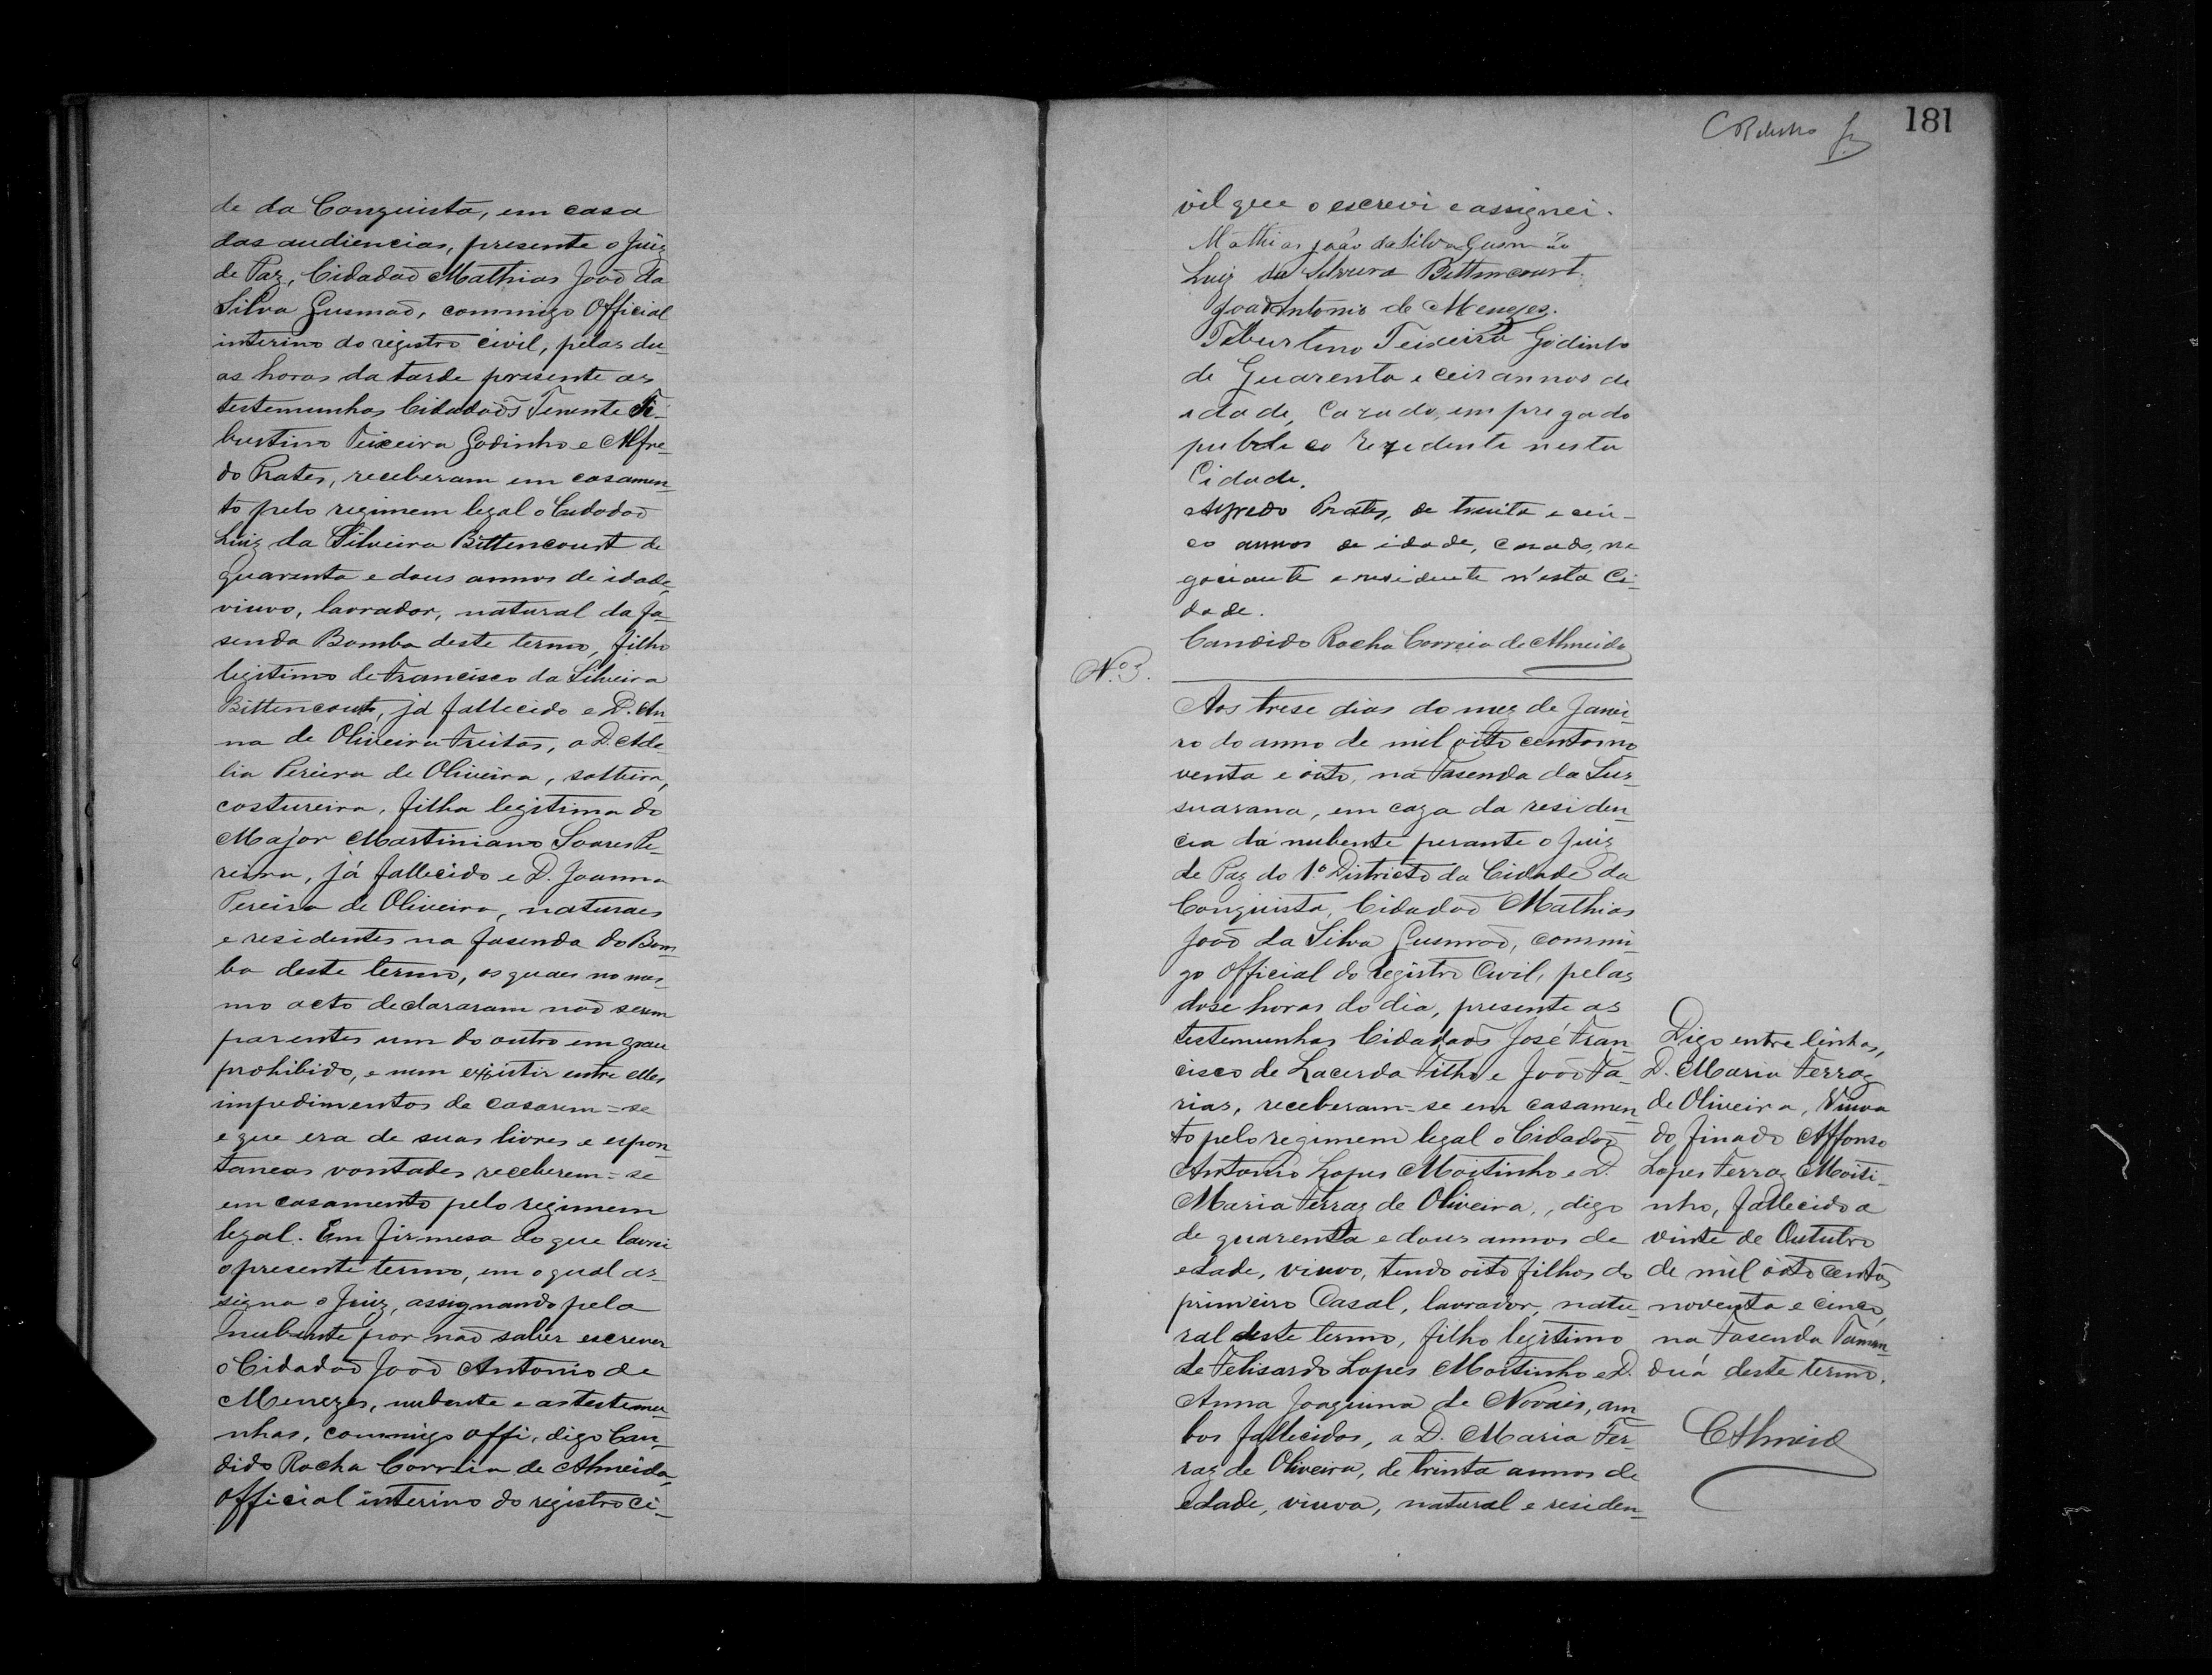 de da Conquista, em casa
das audiencias, presente o Juiz
de Paz, Cidadaõ Mathias Joaõ da
Silva Gusmaõ, commigo Official
interino do registro civil, pelas du-
as horas da tarde presente as
testemunhas Cidadaõs Tenente Ti-
burtino Teixeira Godinho e Alfre-
do Prates, receberam em casamen-
to pelo regimem legal o Cidadaõ
Luiz da Silveira Bittencourt de
quarenta e dous annos de idade,
viuvo, lavrador, natural da fa-
senda Bomba deste termo, filho
legitimo de Francisco da Silveira
Bittencourt, já fallecido e D. An-
na de Oliveira Freitas, a D. Ade-
lia Pereira de Oliveira, solteira,
costureira, filha legitima do
Major Martiniano Soares Pe-
reira, já fallecido e D. Joanna
Pereira de Oliveira, naturaes
e residentes na fasenda do Bom-
ba deste termo, os quaes no mes-
mo acto declararam naõ serem
parentes um do outro em grau
prohibido, e nem existir entre elles
impedimentos de casarem=se
e que era de suas livres e espon-
taneas vontades receberem=se
em casamento pelo regimem
legal. Em firmesa do que lavrei
o presente termo, em o qual as-
signa o Juiz, assignando pela
nubente por naõ saber escrever
o Cidadaõ Joaõ Antonio de
Menezes, nubente e as testemu-
nhas, commigo offi, digo Can-
dido Rocha Correia de Almeida,
official interino do registro ci-
181
vil que o escrevi e assignei.
Mathias joão da Silva Gusmão
Luiz da Silveira Bittencourt.
Joaõ Antonio de Menezes.
Tiburtino Teixeira Godinho
de Quarenta e ceis annos de
idade, Cazado, empregado
publico rezidente nesta
Cidade.
Alfredo Prates, de trinta e cin-
co annos de idade, casado, ne
gociante e residente n'esta Ci-
dade.
Candido Rocha Correia de Almeida
Nº. 3.
Aos trese dias do mez de Janei-
ro do anno de mil oito centos no
venta e oito, na Fasenda da Sus-
suarana, em caza da residen-
cia da nubente perante o Juiz
de Paz do 1º Districto da Cidade da
Conquista, Cidadaõ Mathias
Joaõ da Silva Gusmaõ, commi-
go official do registro Civil, pelas
dose horas do dia, presente as
testemunhas Cidadaõs José Fran-
cisco de Lacerda Filho e Joaõ Fa-
rias, receberam=se em casamen
to pelo regimem legal o Cidadaõ
Antonio Lopes Moitinho e D.
Maria Ferraz de Oliveira, digo
de quarenta e dous annos de
edade, viuvo, tendo oito filhos do
primeiro Casal, lavrador, natu
ral deste termo, filho legitimo
de Felisardo Lopes Moitinho e D.
Anna Joaquina de Novais, am
bos fallecidos, a D. Maria Fer-
raz de Oliveira, de trinta annos de
edade, viuva, natural e residen-
Digo entre linhas,
D. Maria Ferraz
de Oliveira, Viuva
do finado Affonso
Lopes Ferraz Moiti-
nho, fallecido a
vinte de Outubro
de mil oito centos
noventa e cinco,
na Fasenda Taman-
duá deste termo.
CAlmeida